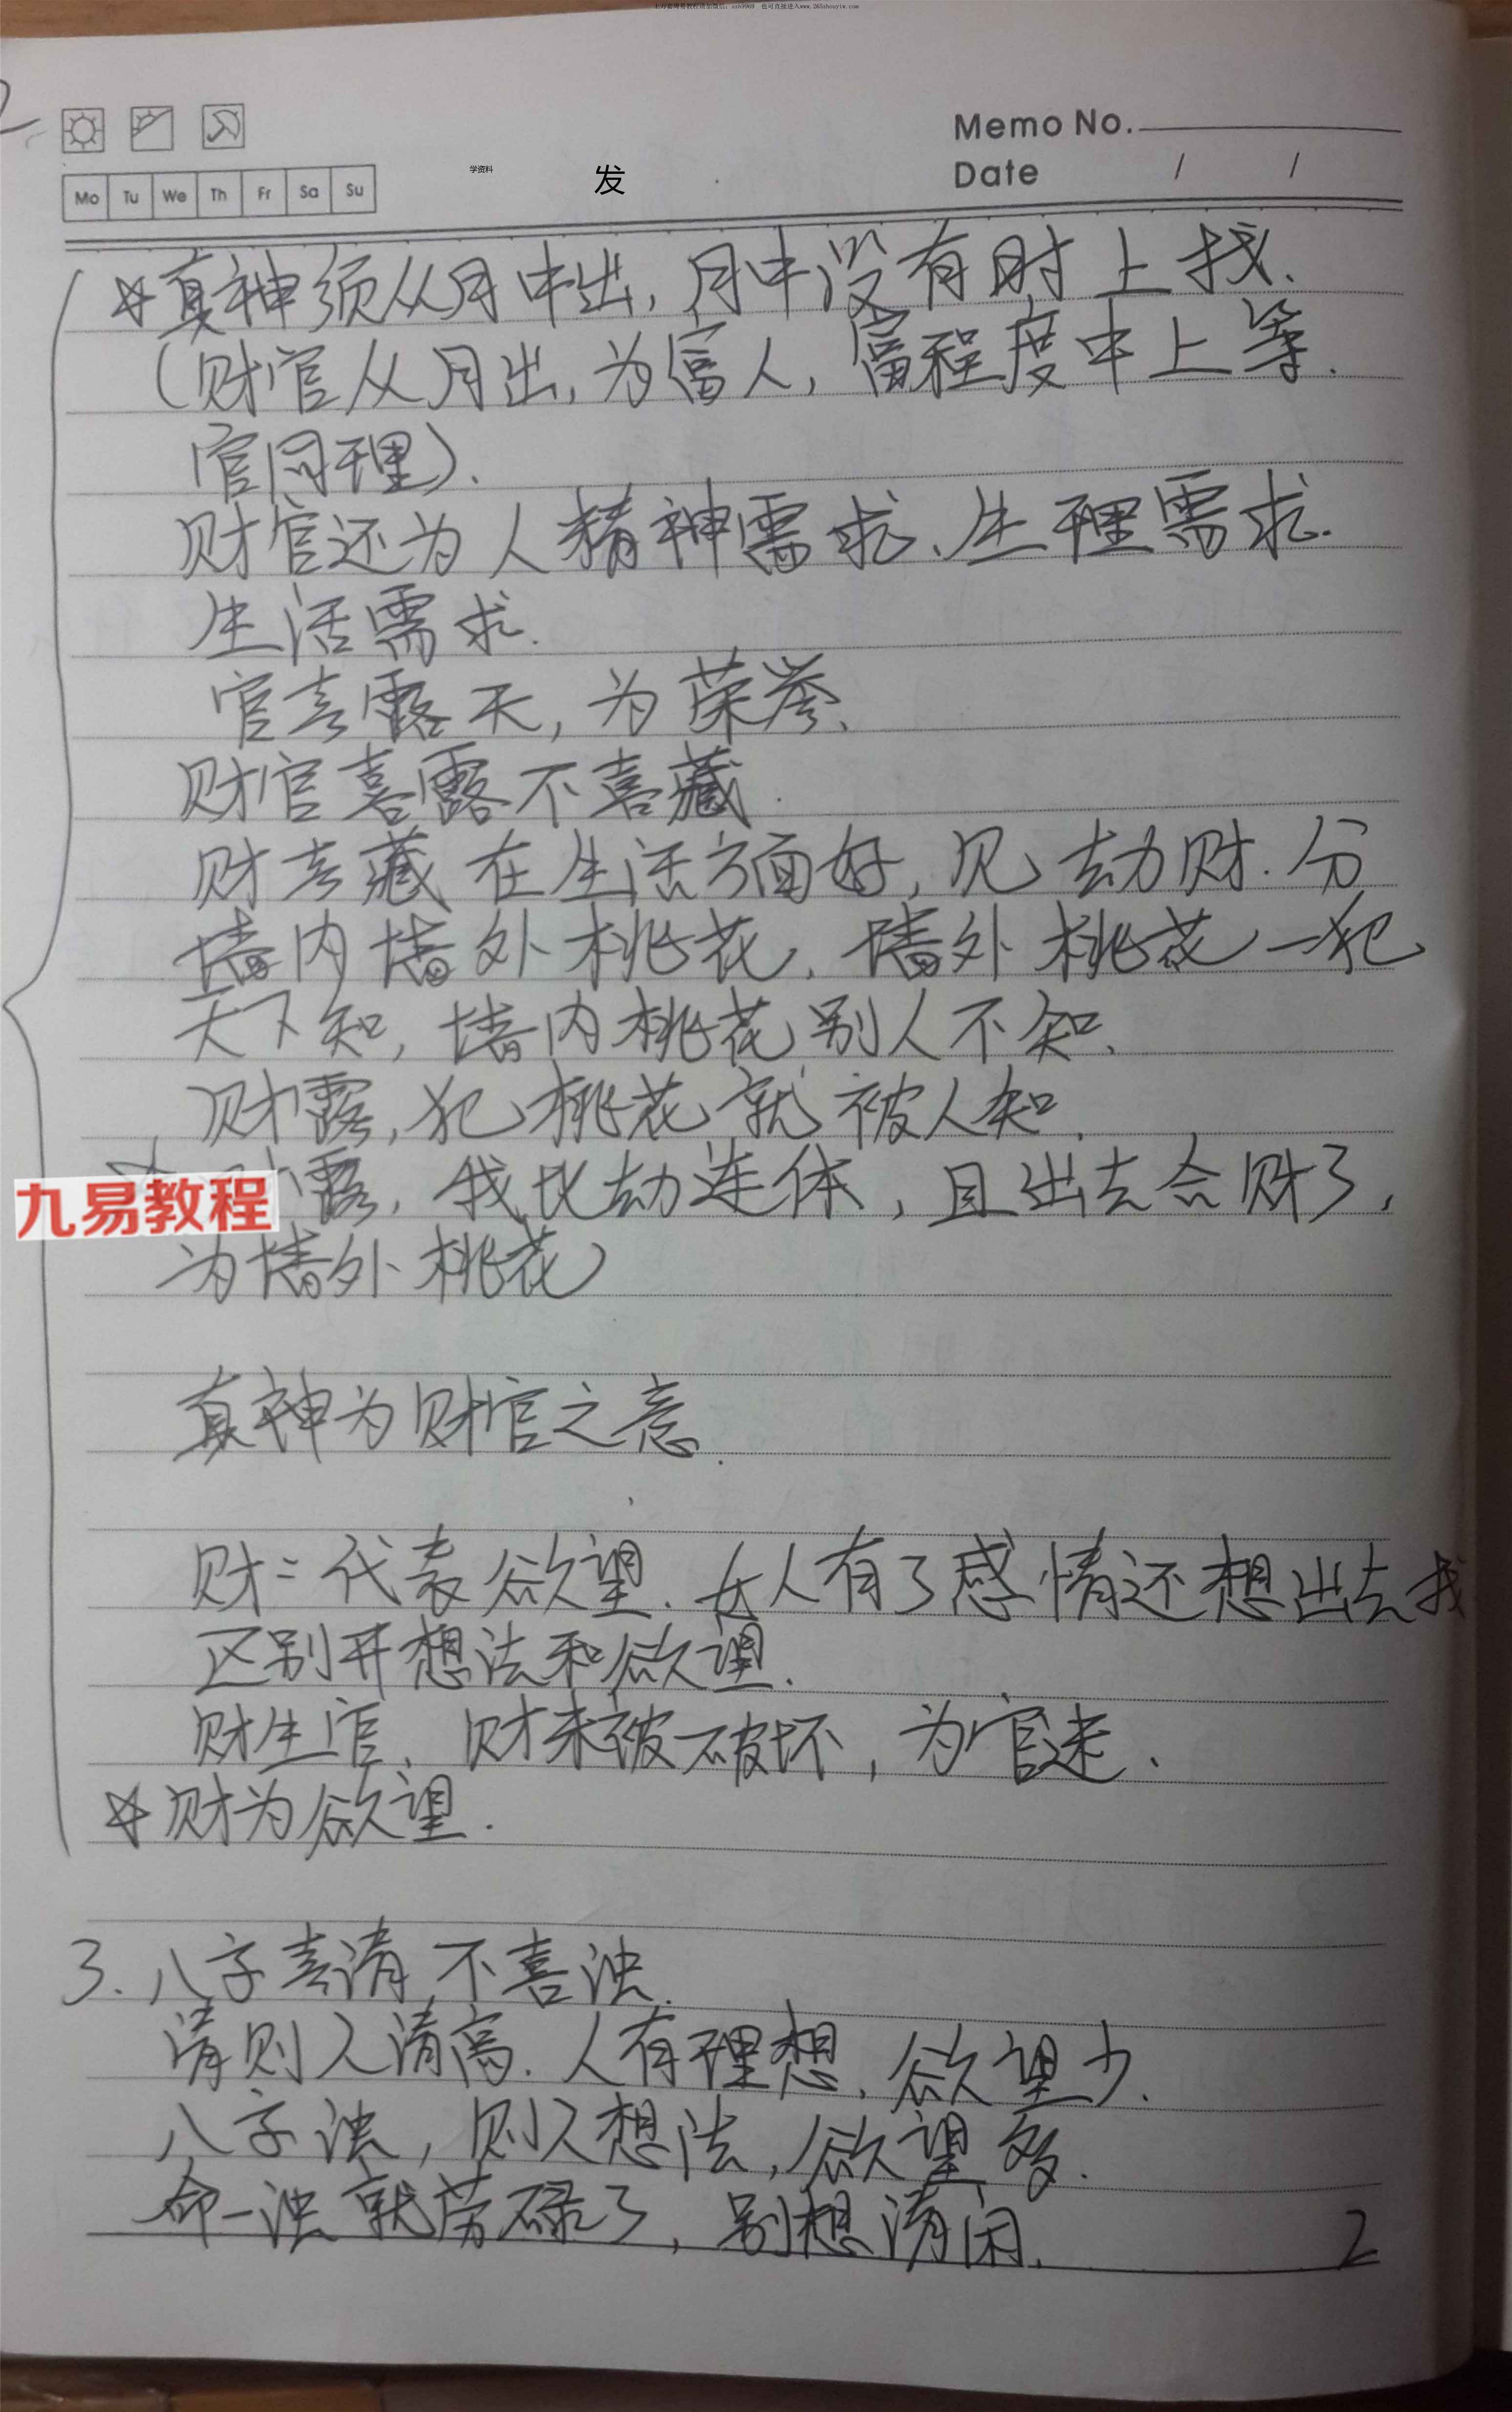 Memo No.
Date / /
Mo Tu We Th Fr Sa Su
学资料 发
☆真神须从月中出，月中没有时上找、
（财官从月出，为富人，富程度中上等．
官同理）．
财官还为人精神需求、生理需求．
生活需求．
官喜露天，为荣誉、
财官喜露不喜藏．
财喜藏在生活方面好，见劫财．分
墙内墙外桃花，墙外桃花一犯
天下知，墙内桃花别人不知、
财露，犯桃花就被人知．
露，我比劫连体，且出去合财了，
九易教程
为墙外桃花
真神为财官之意．
财=代表欲望．女人有了感情还想出去找
区别开想法和欲望．
财生官、财来被破坏，为官迷、
☆财为欲望．
3．八字喜清，不喜浊．
清则人清高．人有理想，欲望少．
八字浊，则人想法，欲望多．
命一浊就劳碌了，别想清闲．
2